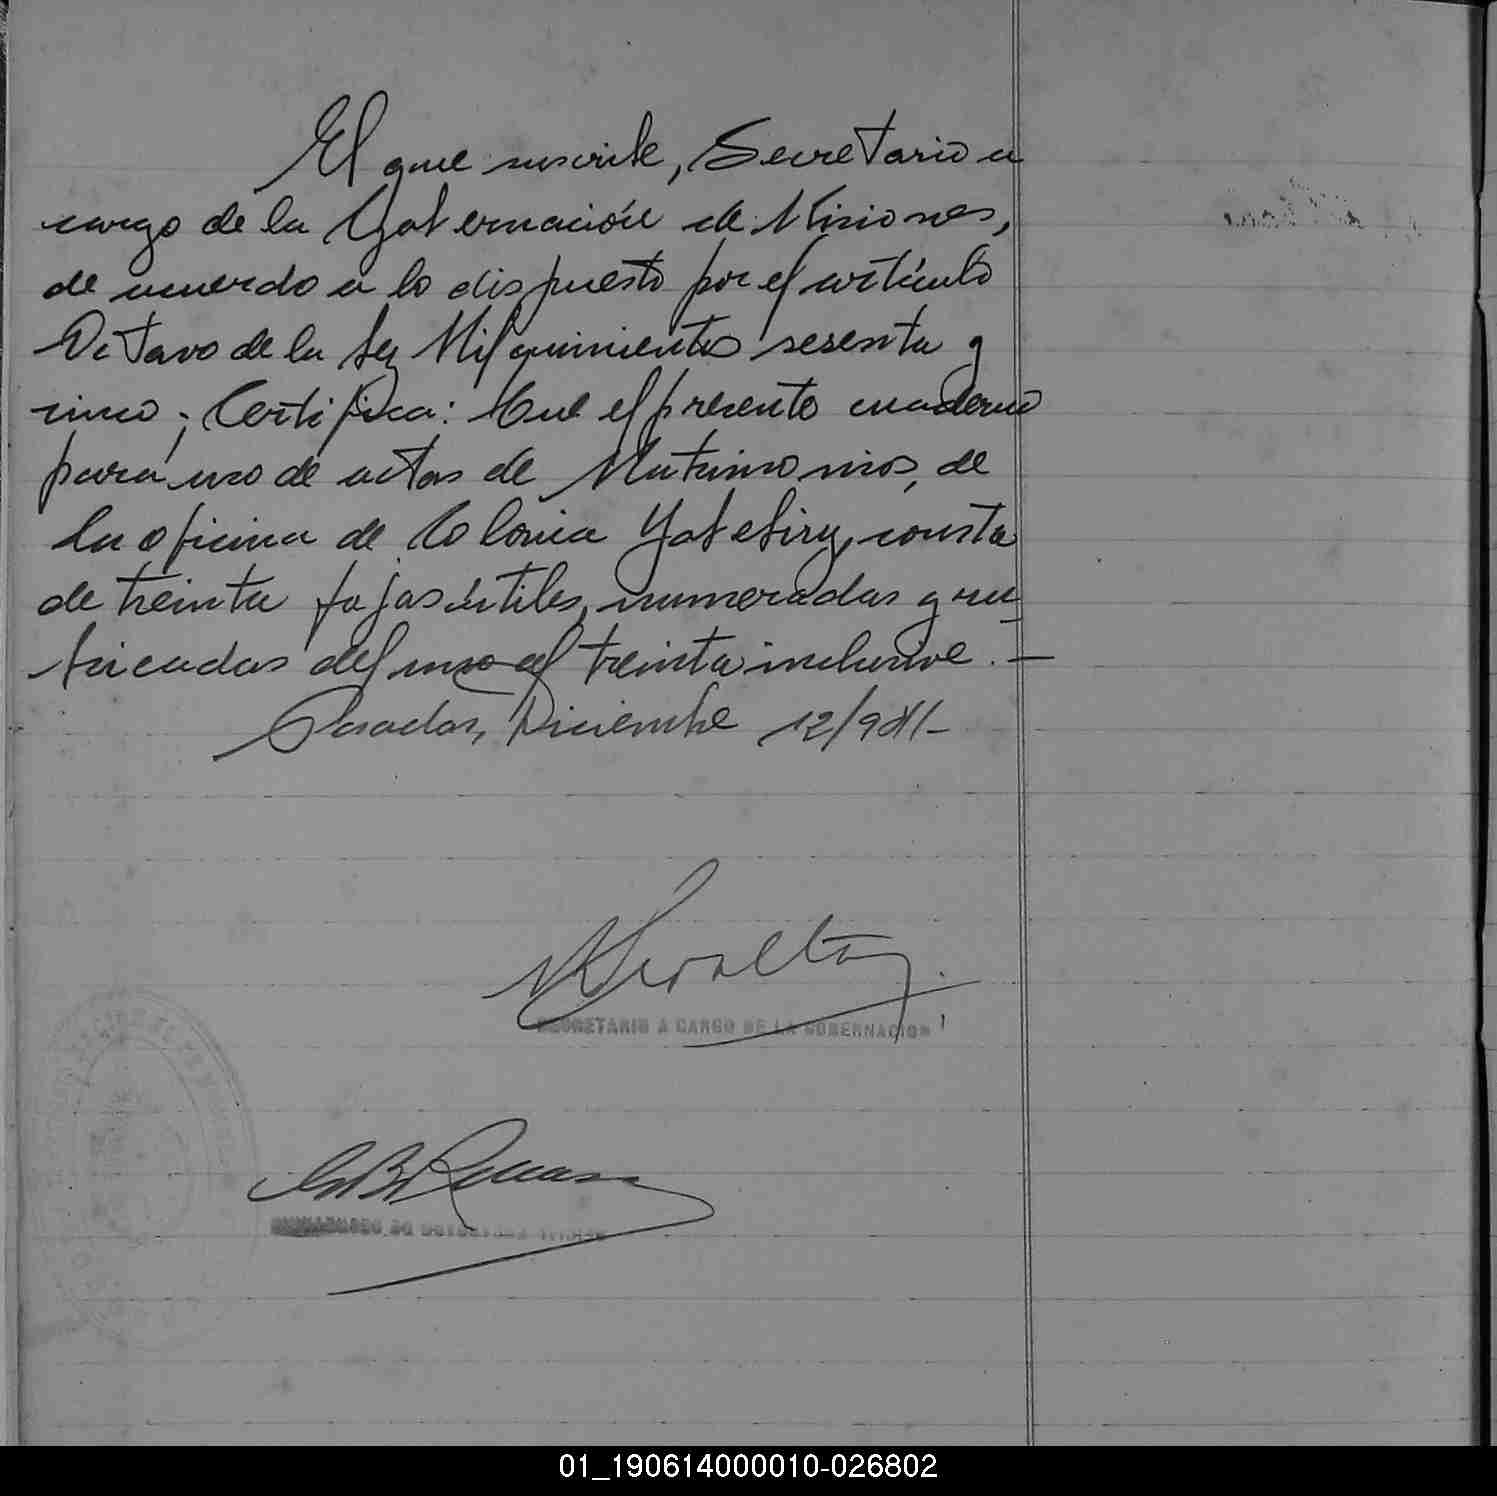 El que suscribe, Secretario a
cargo de la Gobernación de Misiones,
de acuerdo a lo dispuesto por el artículo
Octavo de la Ley Mil quinientos sesenta y
cinco; Certifica: Que el presente cuaderno
para uso de actas de Matrimonios, de
la oficina de Colonia Yabebiry, consta
de treinta fojas útiles, numeradas y ru-
bricadas del uno al treinta inclusive. —
Posadas, Diciembre 12/941-
Peralta
SECRETARIO A CARGO DE LA GOBERNACION
01_190614000010-026802